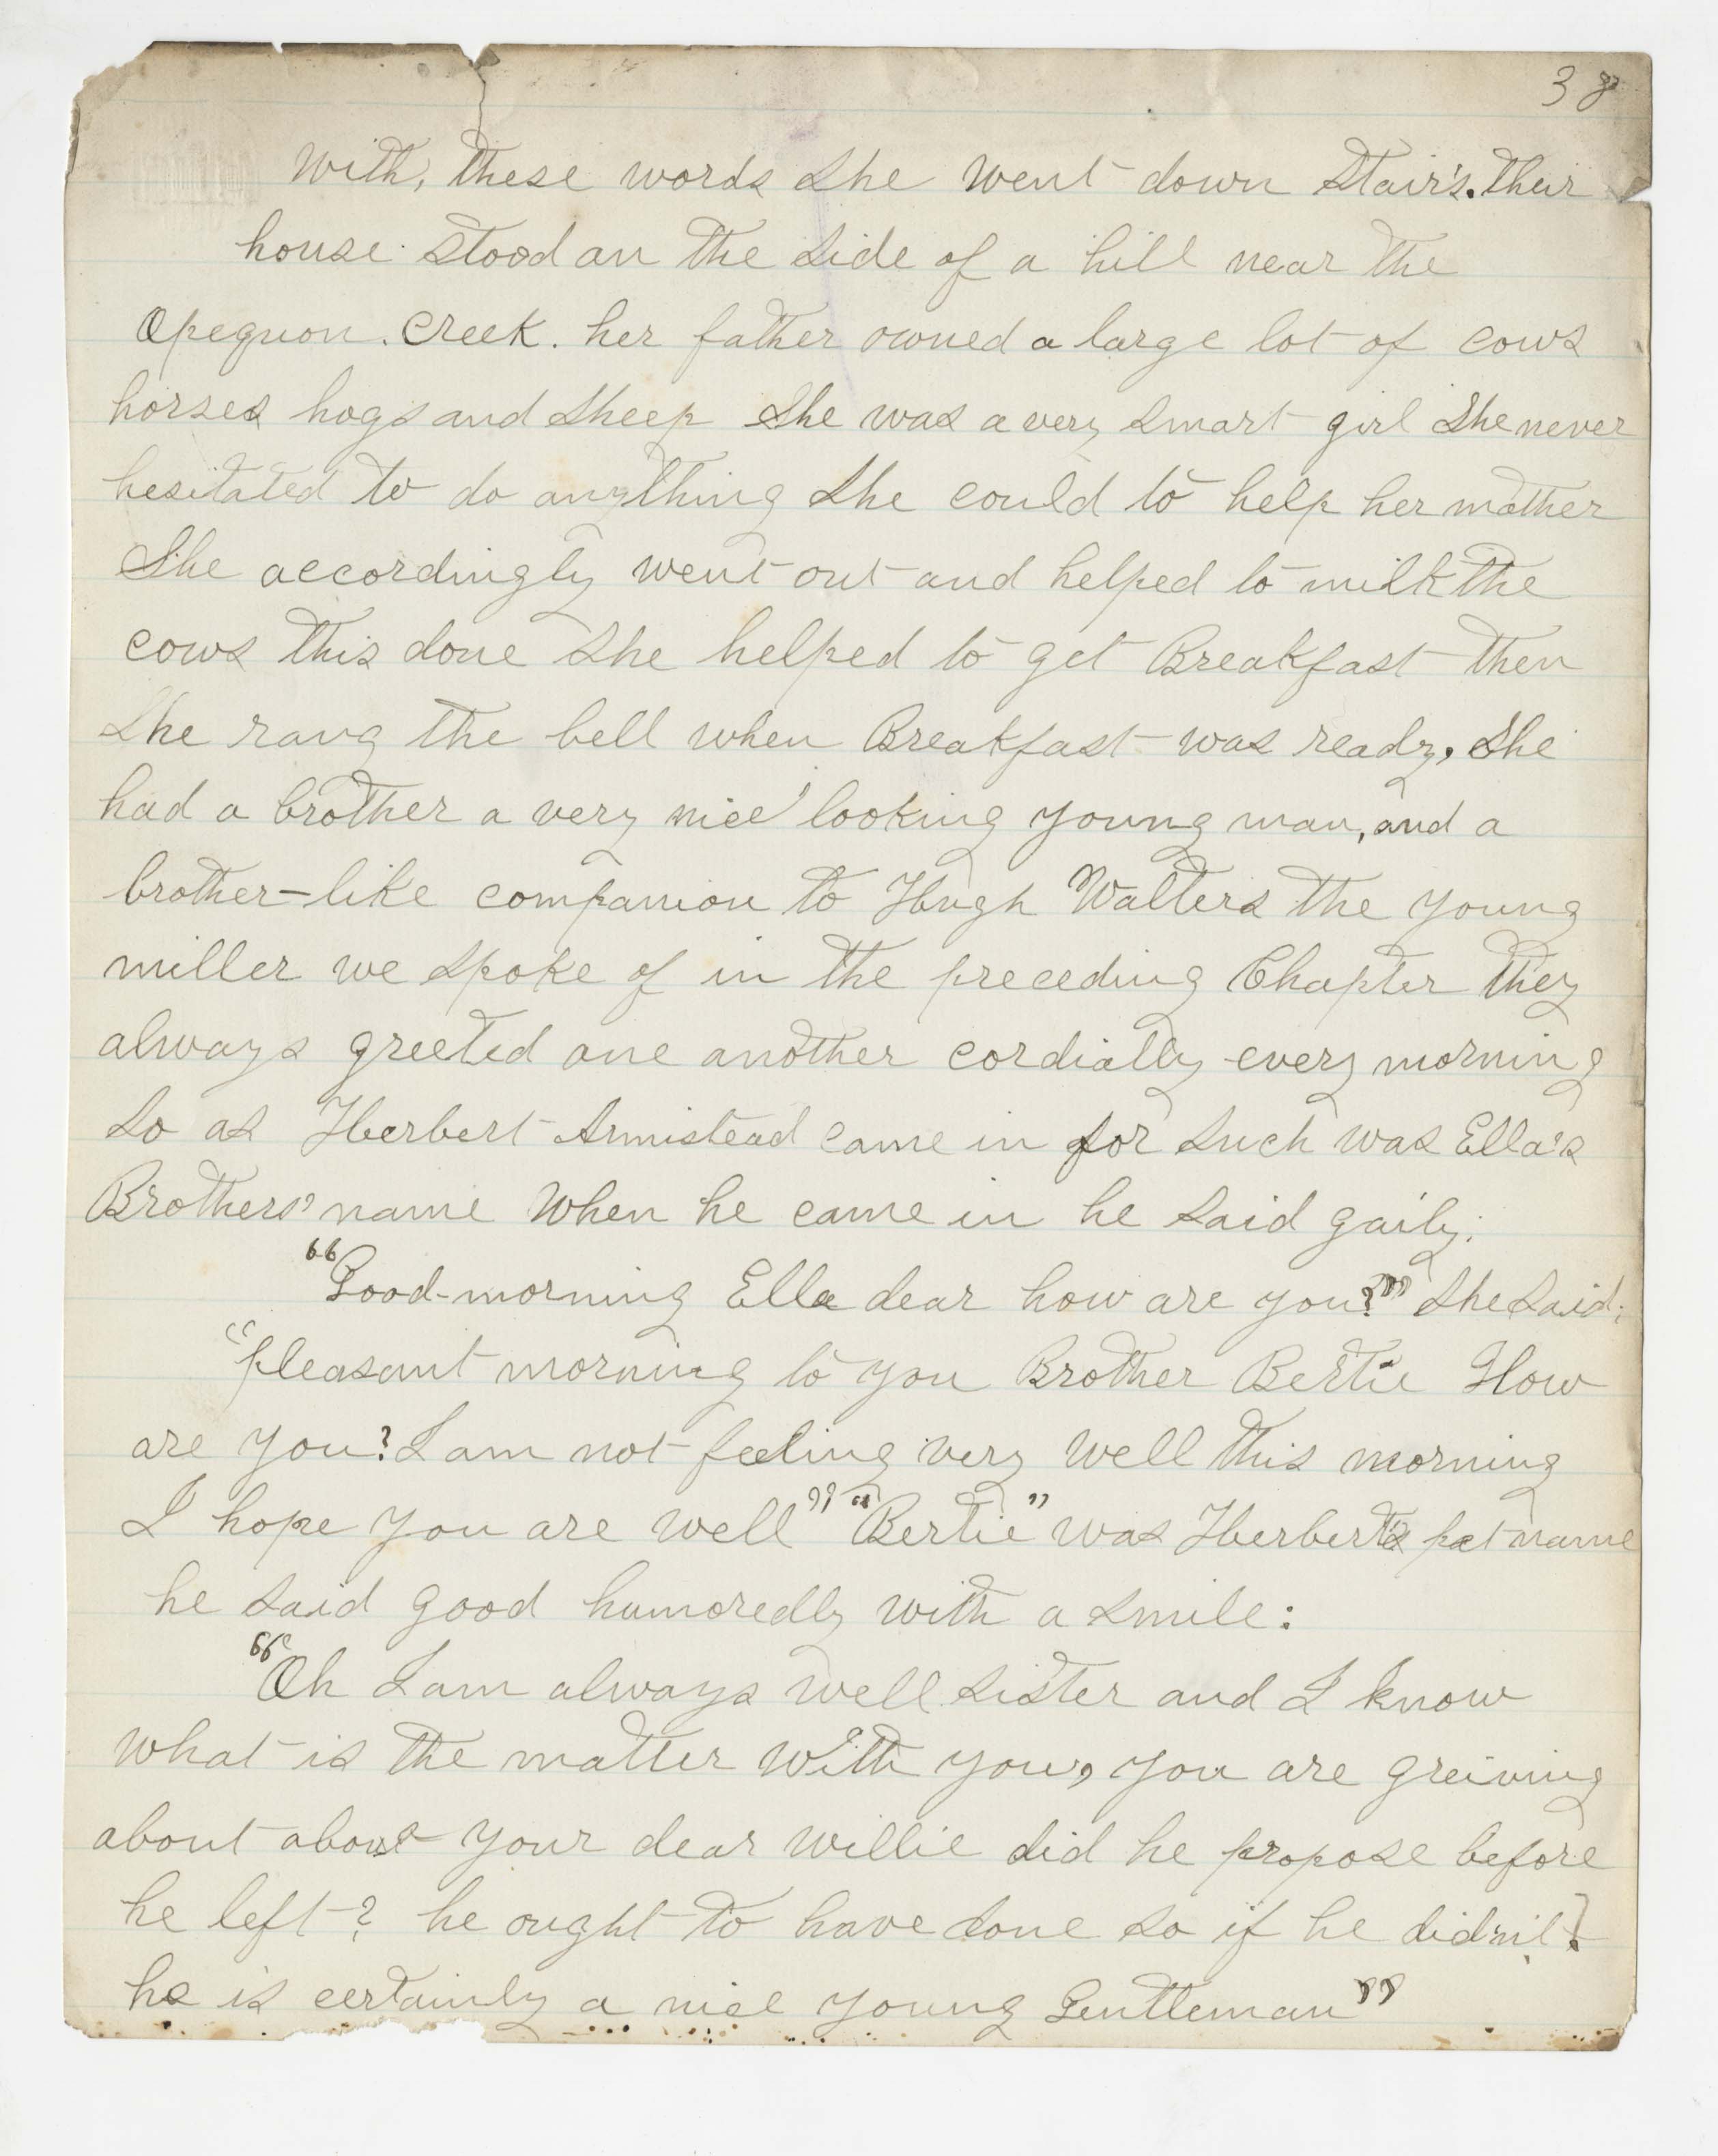 38
With, these words she went down stair's. Their
house stood on the side of a hill near the
Opequon. Creek. her father owned a large lot of cows
horses hogs and sheep She was a very smart girl She never
hesitated to do anything she could to help her mother
She accordingly went out and helped to milk the
cows this done she helped to get Breakfast then
she rang the bell when Breakfast was ready, she
had a brother a very nice looking young man, and a
brother-like companion to Hugh Walters the young
miller we spoke of in the preceding Chapter they
always greeted one another cordially every morning
so as Herbert Armistead came in for such was Ella's
Brothers' name When he came in he said gaily;
"Good-morning Ella dear how are you?" she said;
"pleasant morning to you Brother Bertie How
are you? I am not feeling very well this morning
I hope you are well" "Bertie" was Herbert's pet name
he said good humoredly with a smile:
"Oh I am always well sister and I know
what is the matter with you, you are greiving
about about your dear Willie did he propose before
he left? he ought to have done so if he didn't!
he is certainly a nice young Gentleman"